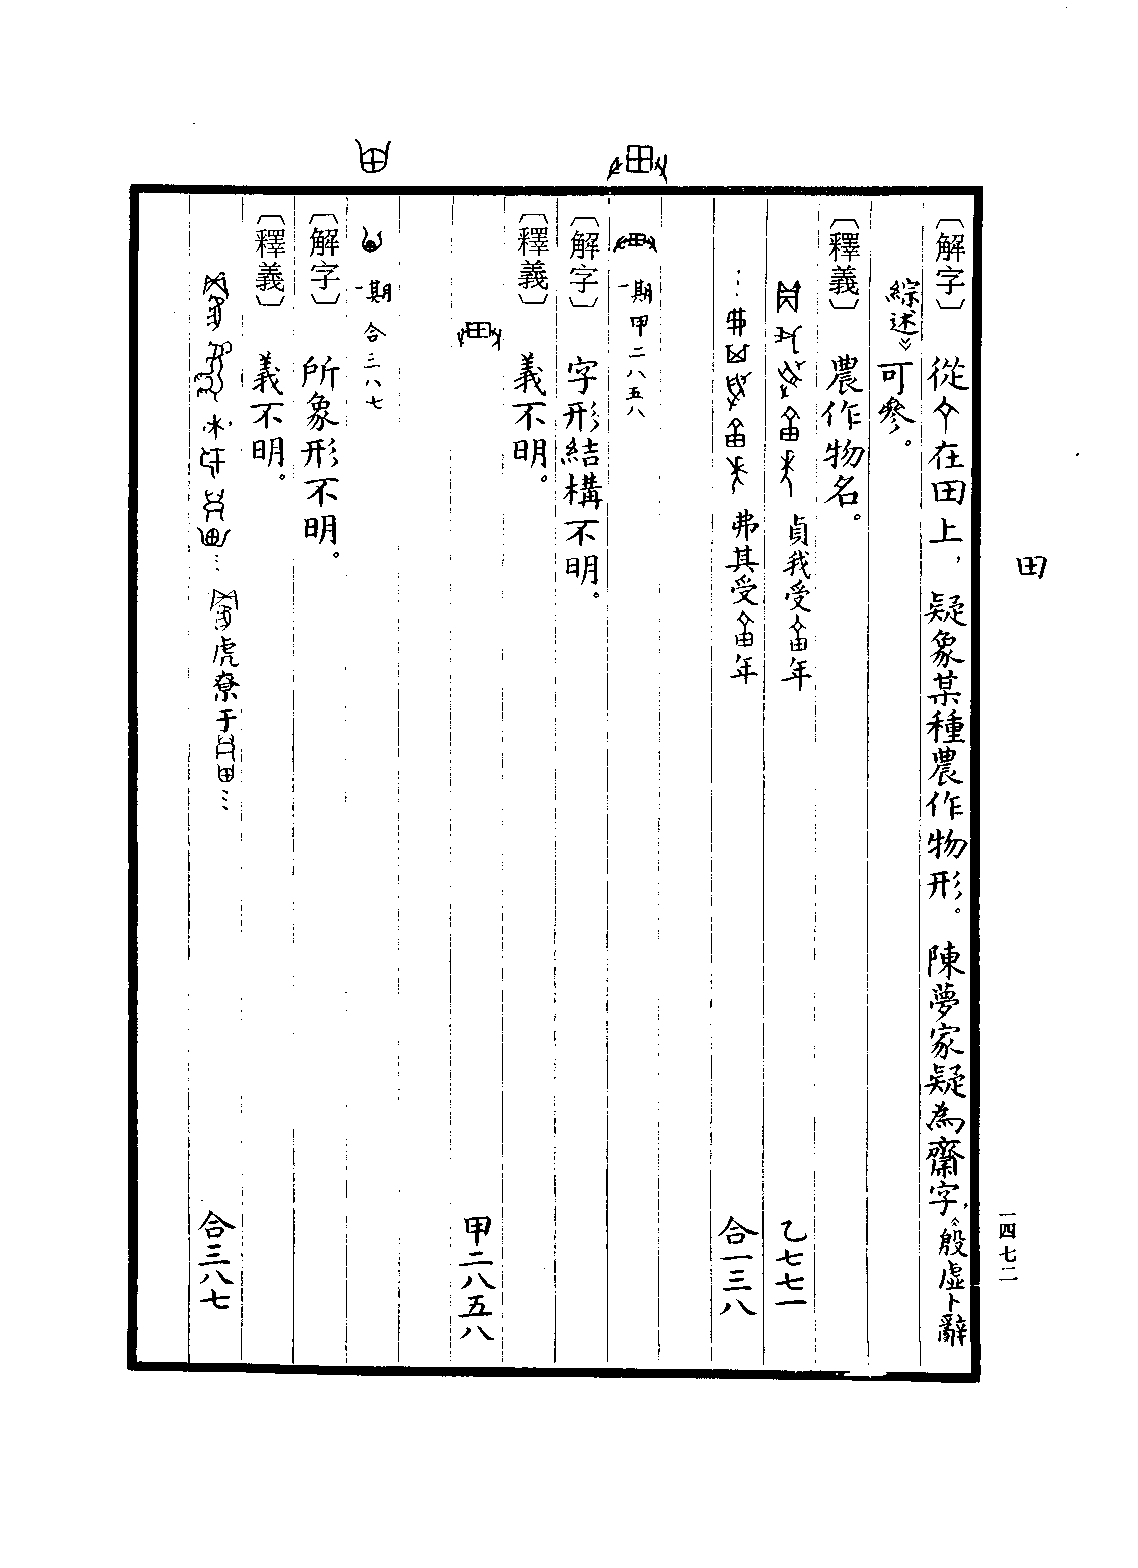 田
一四七二
〔解字〕 從在田上，疑象某種農作物形。陳夢家疑為齋字，《殷虛卜辭
綜述》可參。
〔釋義〕 農作物名。
貞我受年 乙七七一
…弗其受年 合一三八
一期 甲二八五八
〔解字〕 字形結構不明。
〔釋義〕 義不明。
甲二八五八
一期 合三八七
〔解字〕 所象形不明。
〔釋義〕 義不明。
…虎尞于… 合三八七